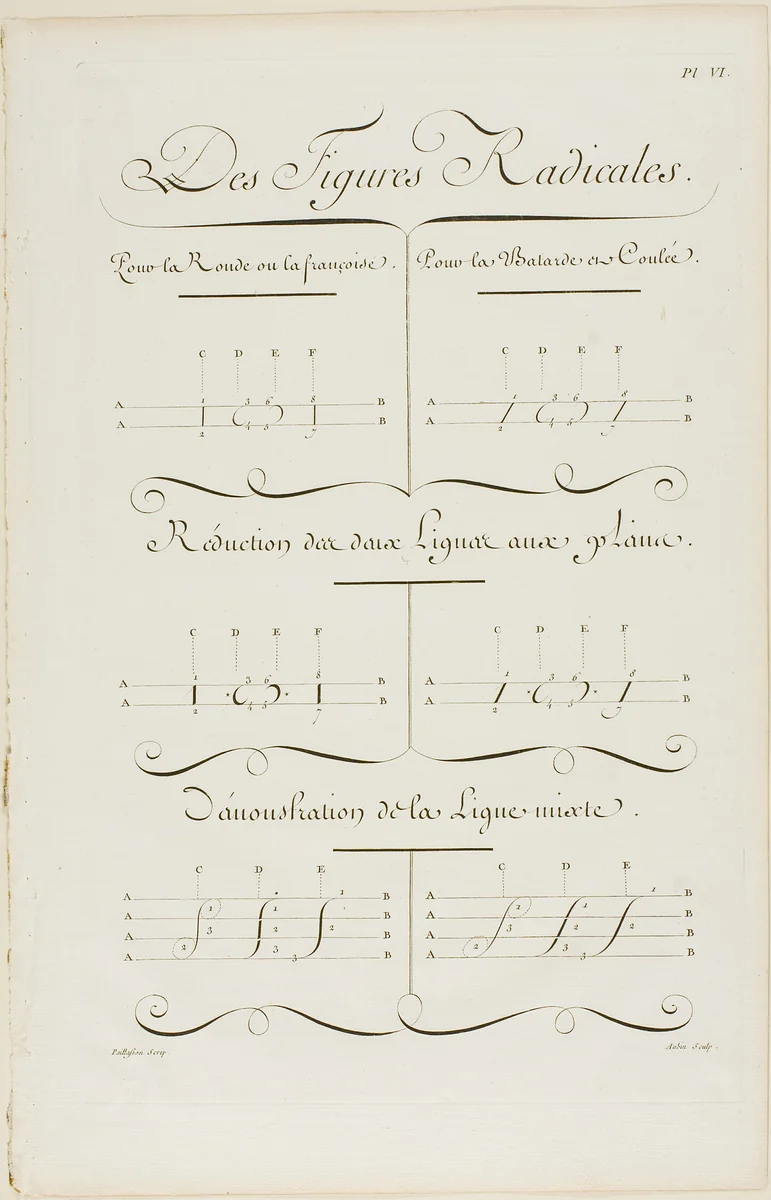 Pl VI.
Des Figures Radicales.
Pour la Ronde ou la françoise. Pour la Batarde et Coulée.
C D E F C D E F
A 1 3 6 8 B A 1 3 6 8 B
A 2 4 5 7 B A 2 4 5 7 B
Réduction des deux Lignes aux pleins.
C D E F C D E F
A 1 3 6 8 B A 1 3 6 8 B
A 2 4 5 7 B A 2 4 5 7 B
Démonstration de la Ligne mixte.
C D E C D E
A 1 B A 1 B
A 1 1 B A 1 1 B
A 3 2 2 B A 3 2 B
A 2 3 3 B A 2 3 3 B
Paillasson Scrip. Aubin Sculp.